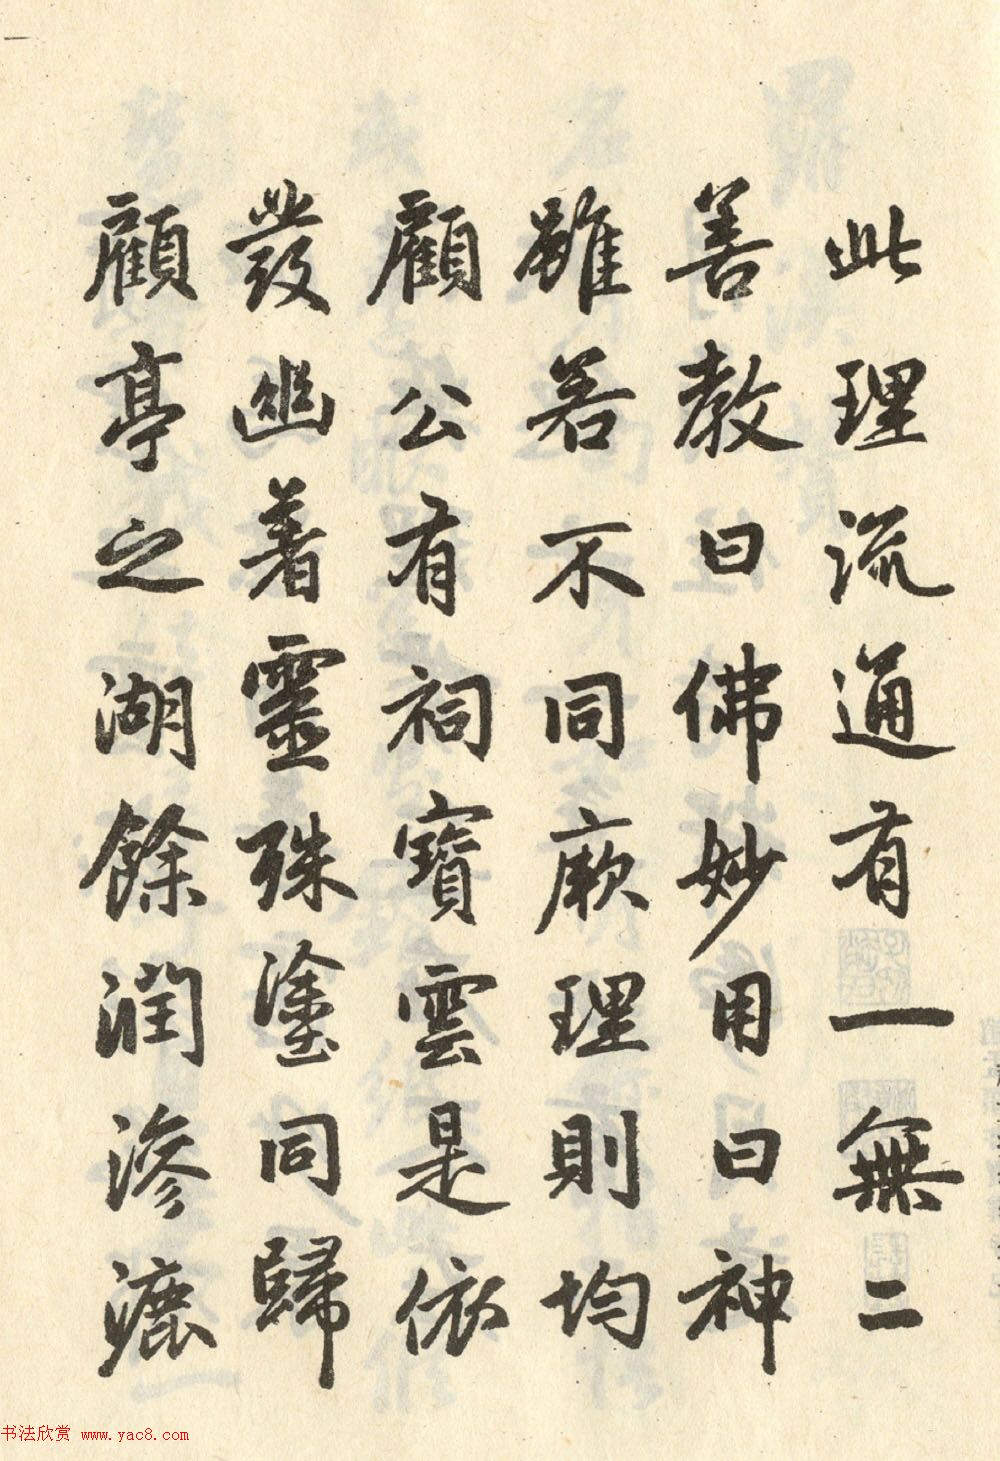 此理流通有一無二
善教曰佛妙用曰神
雖若不同厥理則均
顧公有祠寶雲是依
發幽著靈殊塗同歸
顧亭之湖餘潤滲漉
书法欣赏 www.yac8.com